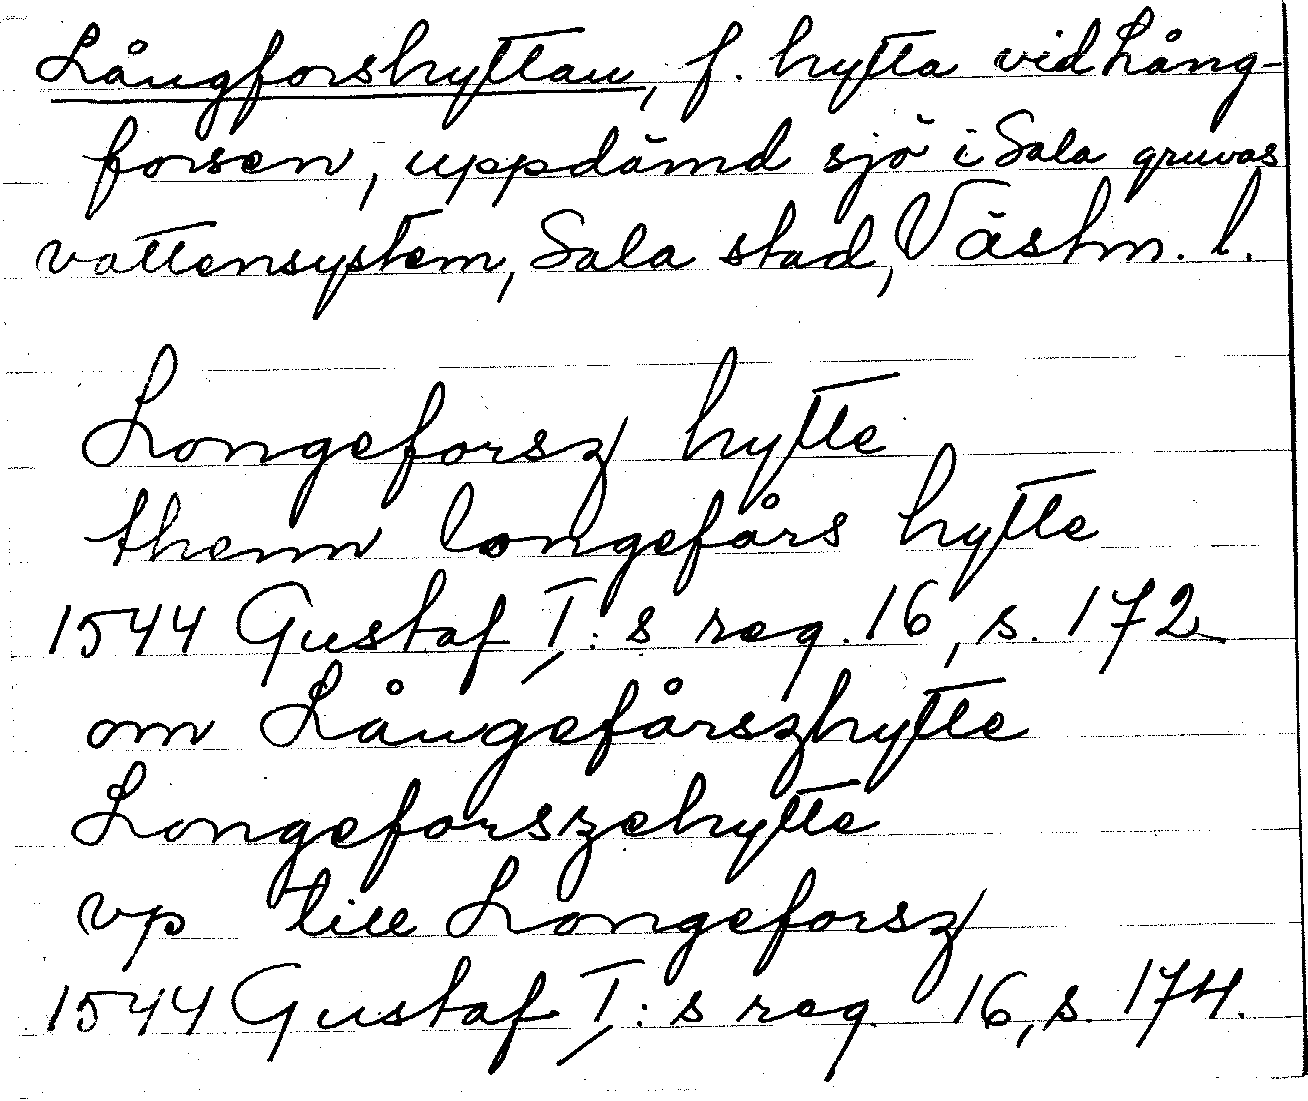 Långforshyttan, f. hytta vid Lång-
forsen, uppdämd sjö i Sala gruvas
vattensystem, Sala stad, Västm. l.
Longeforsz hytte
thenn longefårs hytte
1544 Gustaf I:s reg. 16, s. 172
om Långefårszhytte
Longeforszehytte
vp till Longeforsz
1544 Gustaf I:s reg 16, s. 174.